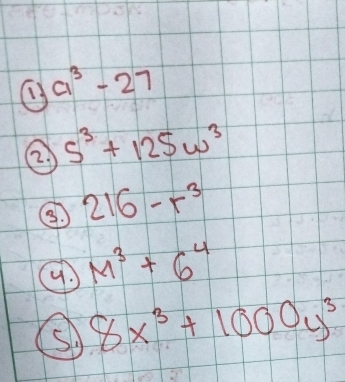 1. a³ - 27
2. s³ + 125w³
3. 216 - r³
4. M³ + 6⁴
5. 8x³ + 1000y³